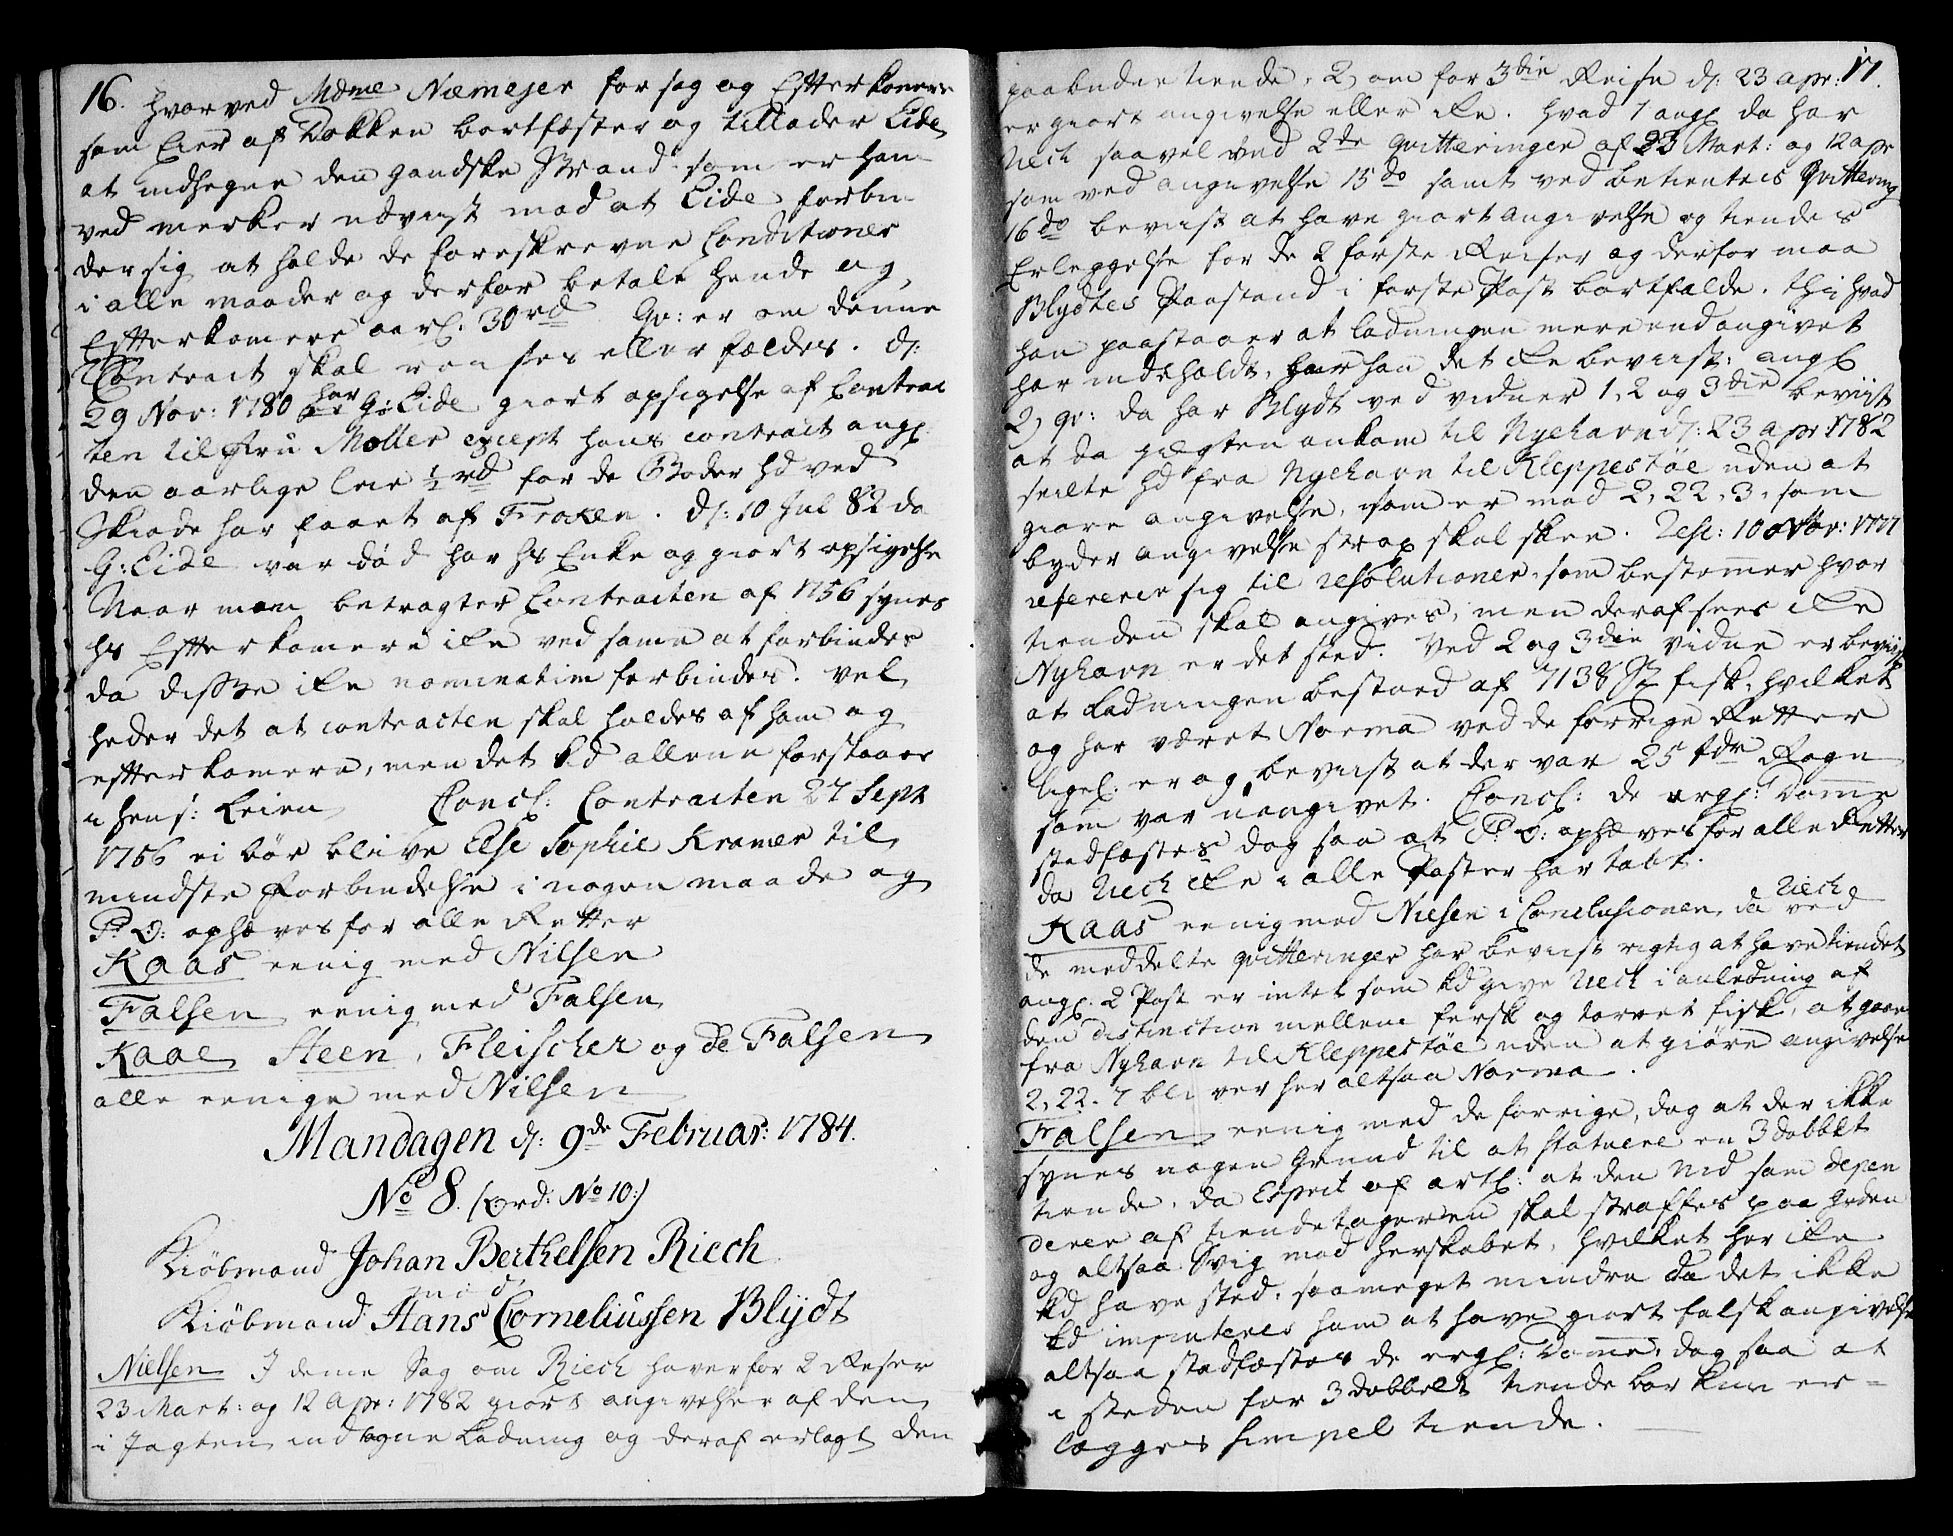 16. hvorved Mdme Næmejer for sig og Efterkomere
som Eier af Dokken bortfæster og tillader Eide
at indhegne den gandske Strand som er ham
ved merker udviist mod at Eide forbin
der sig at holde de foreskrevne Conditioner
i alle maader og derfor betale hende og
Efterkomere aarl: 30 rd Qv: er om denne
Contract skal ansees eller fældes. d:
29 Nov: 1780 har G: Eide giort opsigelse af Contrac
ten til Fru Møller except hans contract ang:
den aarlige leie ½ rd for de Boder hd ved
Skiøde har faaet af Fraxen. d: 10 Jul 82 da
G: Eide var død har hs Enke og giort opsigelse
Naar man betragter Contracten af 1756 synes
hs Efterkomere ike ved samme at forbindes
da disse ike nominatim forbindes. vel
heder det at contracten skal holdes af ham og
efterkomere, men det kd allene forstaaes
i hens: Leien Concl: Contracten 27 Sept
1756 ei bør blive Else Sophie Kramer til
mindste Forbindelse i nogen maade og
P: O: ophæves for alle Retter
Kaas eenig med Nilsen
Falsen eenig med Falsen
Kaae, Steen, Fleischer og de Falsen
alle eenige med Nilsen
Mandagen d: 9de Februar: 1784.
No 8. (Ord: No 10:)
Kiøbmand Johan Berthelsen Riech
mod
Kiøbmand Hans Corneliussen Blydt
Nielsen I denne Sag om Riech haver for 2 Reiser
23 Mart: og 12 Apr: 1782 giort angivelser af den
i Jagten indtagne Ladning og deraf erlagt den
17.
paabudne tiende, 2, om for 3die Reise d: 23 apr:
er giort angivelse eller ike. hvad 1 ang: da har
Riech saavel ved 2de qvitteringer af 23 Mart: og 12 apr
som ved angivelse 15 do samt ved betientes Qvittering
16 do beviist at have giort angivelse og tiendes
Erleggelse for de 2 første Reiser og derfor maa
Blydtes Paastand i første Post bortfalde. thi hvad
han paastaaer at ladningen mere end angivet
har indeholdt, har han det ike beviist. ang:
2, qv: da har Blydt ved vidner 1, 2 og 3die beviist
at da jægten ankom til Nyehavn d: 23 apr 1782
seilte hd fra Nyehavn til Kleppestøe uden at
giøre angivelse, som er mod 2, 22, 3, som
byder angivelse strax skal skee. Resc: 10 Nov: 1777
refererer sig til resolutioner, som bestemmer hvor
tienden skal angives, men deraf sees ike
Nyhavn er det sted. Ved 2 og 3die vidne er beviist
at Ladningen bestoed af 7138 fisk, hvilket
og har været Norma ved de forrige Retter
ligel: er og beviist at der var 25 tdr Rogn
som var uangivet. Concl: de ergl: Domme
stadfæstes dog saa at P: O: ophæves for alle Retter
da Riech ike i alle Poster har tabt.
Kaas eenig med Nielsen i Conclusionen, da Riech ved
de meddelte qvitteringer har beviist rigtig at have tiendet
ang: 2 Post er intet som kd give Riech i anledning af
den distinction mellem fersk og torret fisk, at gaae
fra Nyhavn til Kleppestøe uden at giøre angivelse
2, 22. 7 bliver her altsaa Norma.
Falsen eenig med de forrige, dog at der ikke
synes nogen Grund til at statuere en 3dobbelt
tiende, da Esprit af artl: at den Nid som depen
derer af tiendetageren skal straffes paa Goden
og altsaa Svig mod herskabet, hvilket her ike
kd have sted, saameget mindre da det ikke
kd imputeres ham at have giort falsk angivelse
altsaa stadfæstes de ergl: Domme, dog saa at
i steden for 3dobbelt tiende bør kun er-
lægges simpel tiende.